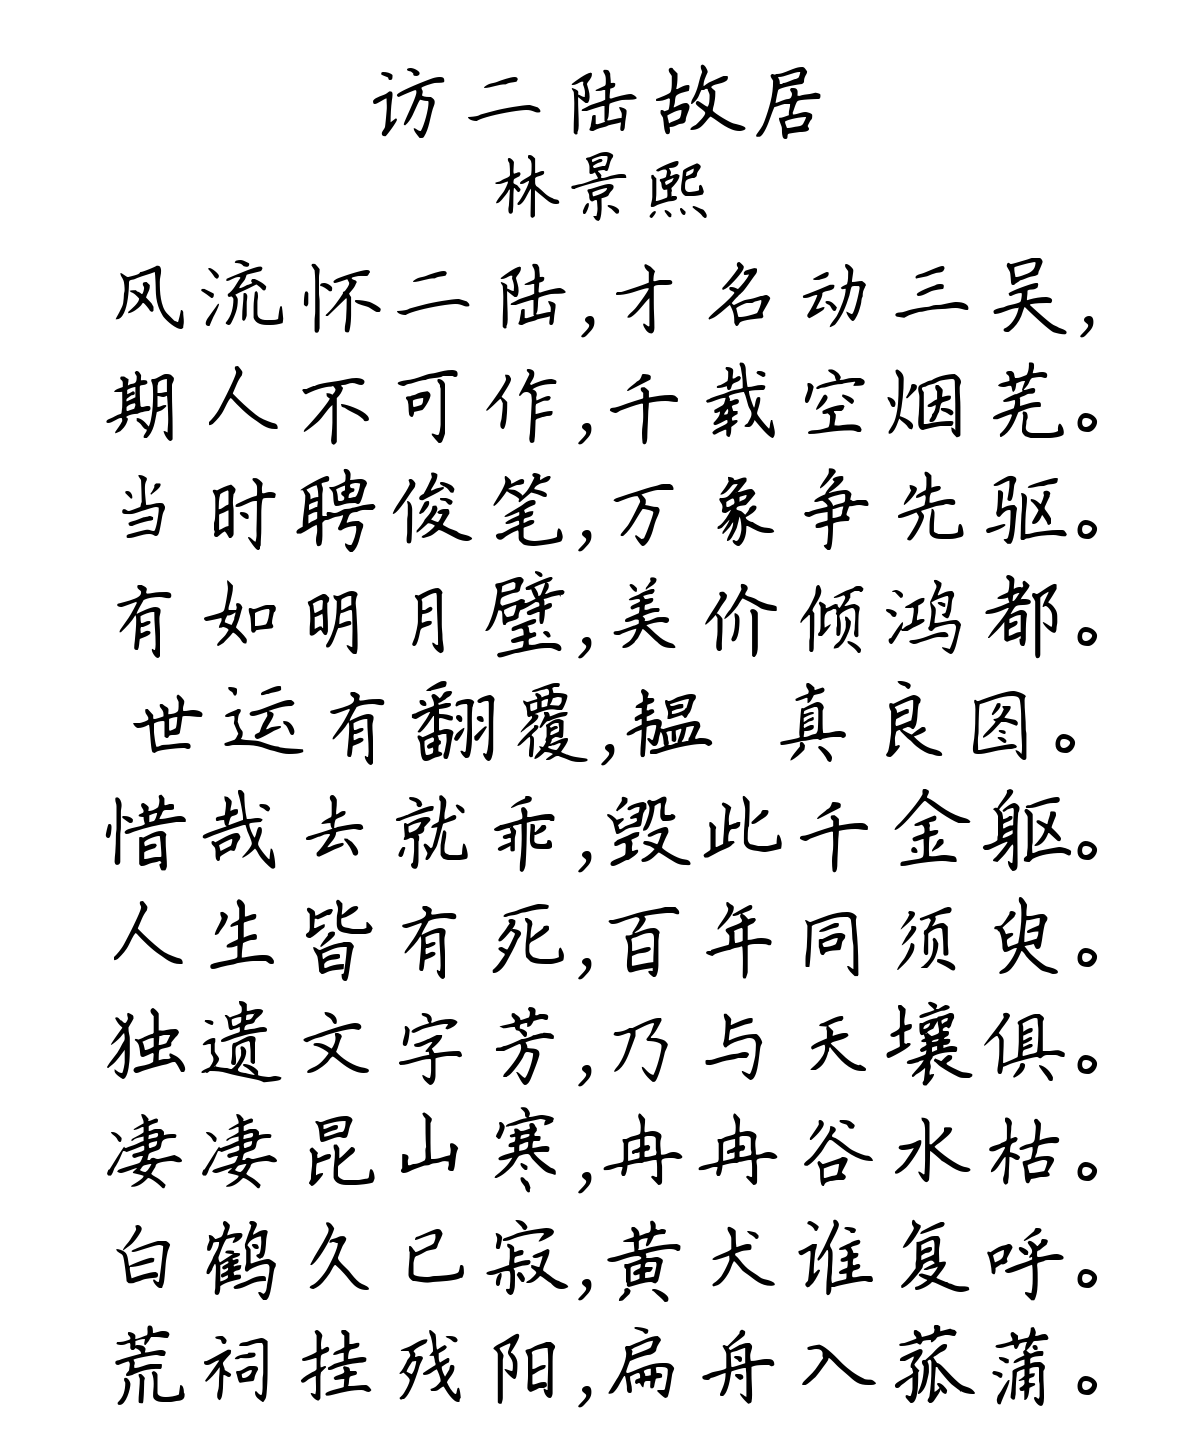 访二陆故居
林景熙
风流怀二陆,才名动三吴,
期人不可作,千载空烟芜。
当时聘俊笔,万象争先驱。
有如明月璧,美价倾鸿都。
世运有翻覆,韫 真良图。
惜哉去就乖,毁此千金躯。
人生皆有死,百年同须臾。
独遗文字芳,乃与天壤俱。
凄凄昆山寒,冉冉谷水枯。
白鹤久已寂,黄犬谁复呼。
荒祠挂残阳,扁舟入菰蒲。